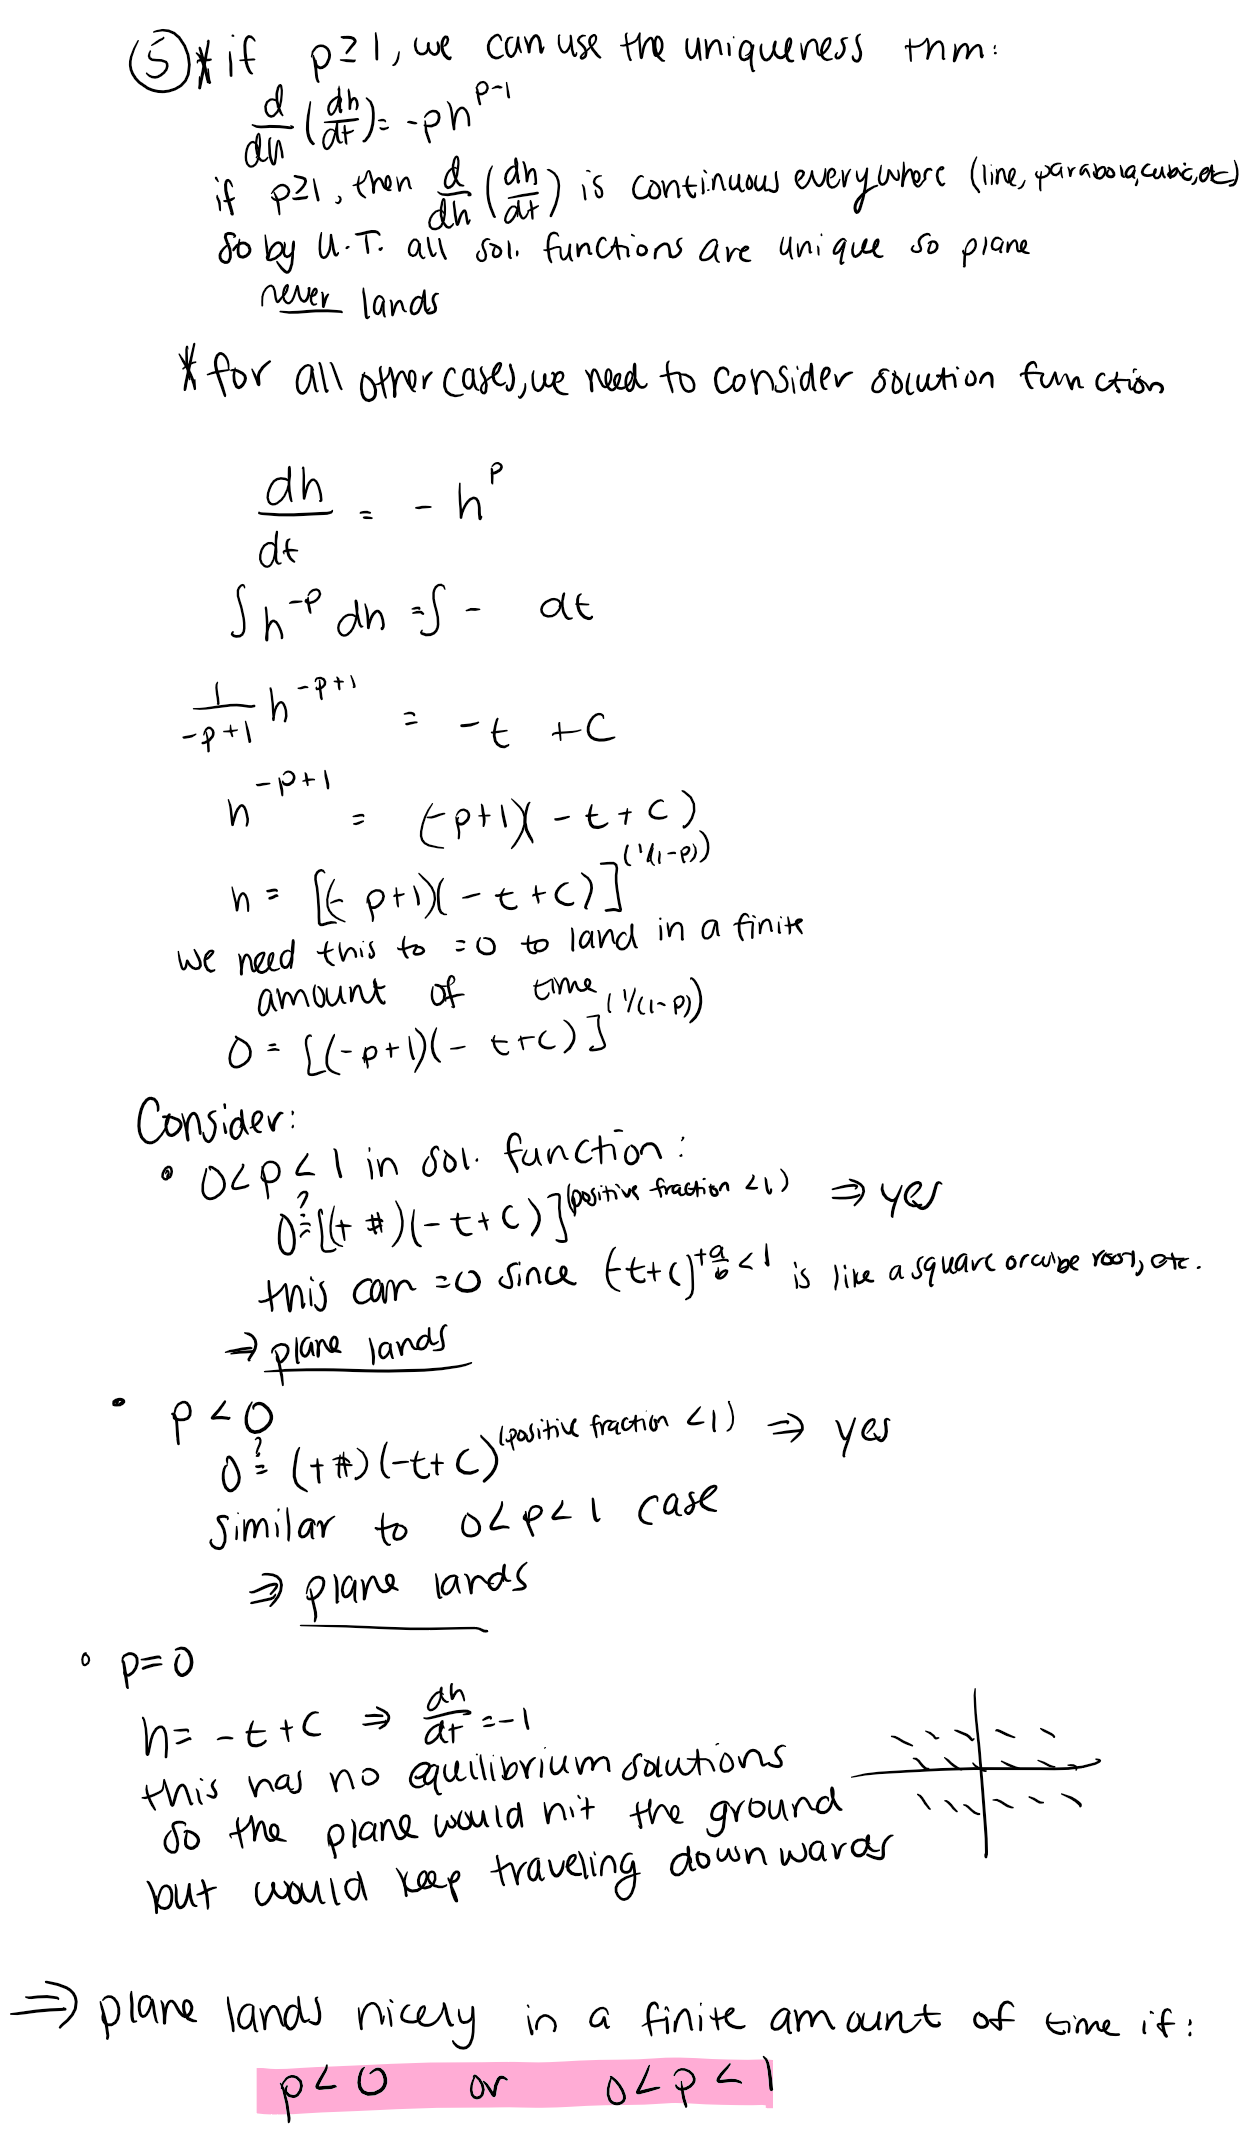 ⑤ * if p≥1, we can use the uniqueness thm:
d/dh (dh/dt) = -ph^(p-1)
if p≥1, then d/dh (dh/dt) is continuous everywhere (line, parabola, cubic, etc)
So by U.T. all sol. functions are unique so plane
never lands
* for all other cases, we need to consider solution function
dh/dt = -h^p
∫ h^(-p) dh = ∫ - dt
1/(-p+1) h^(-p+1) = -t + C
h^(-p+1) = (-p+1)(-t+C)
h = [(-p+1)(-t+C)]^(1/(1-p))
we need this to =0 to land in a finite
amount of time
0 = [(-p+1)(-t+C)]^(1/(1-p))
Consider:
• 0<p<1 in sol. function:
0 ?= [(+ #)(-t+C)]^(positive fraction <1) ⇒ yes
this can =0 since (-t+C)^(+a/b <1) is like a square or cube root, etc.
⇒ plane lands
• p<0
0 ?= (+#)(-t+C)^(positive fraction <1) ⇒ yes
similar to 0<p<1 case
⇒ plane lands
• p=0
h= -t+C ⇒ dh/dt = -1
this has no equilibrium solutions
so the plane would hit the ground
but would keep traveling downwards
⇒ plane lands nicely in a finite amount of time if:
p<0 or 0<p<1